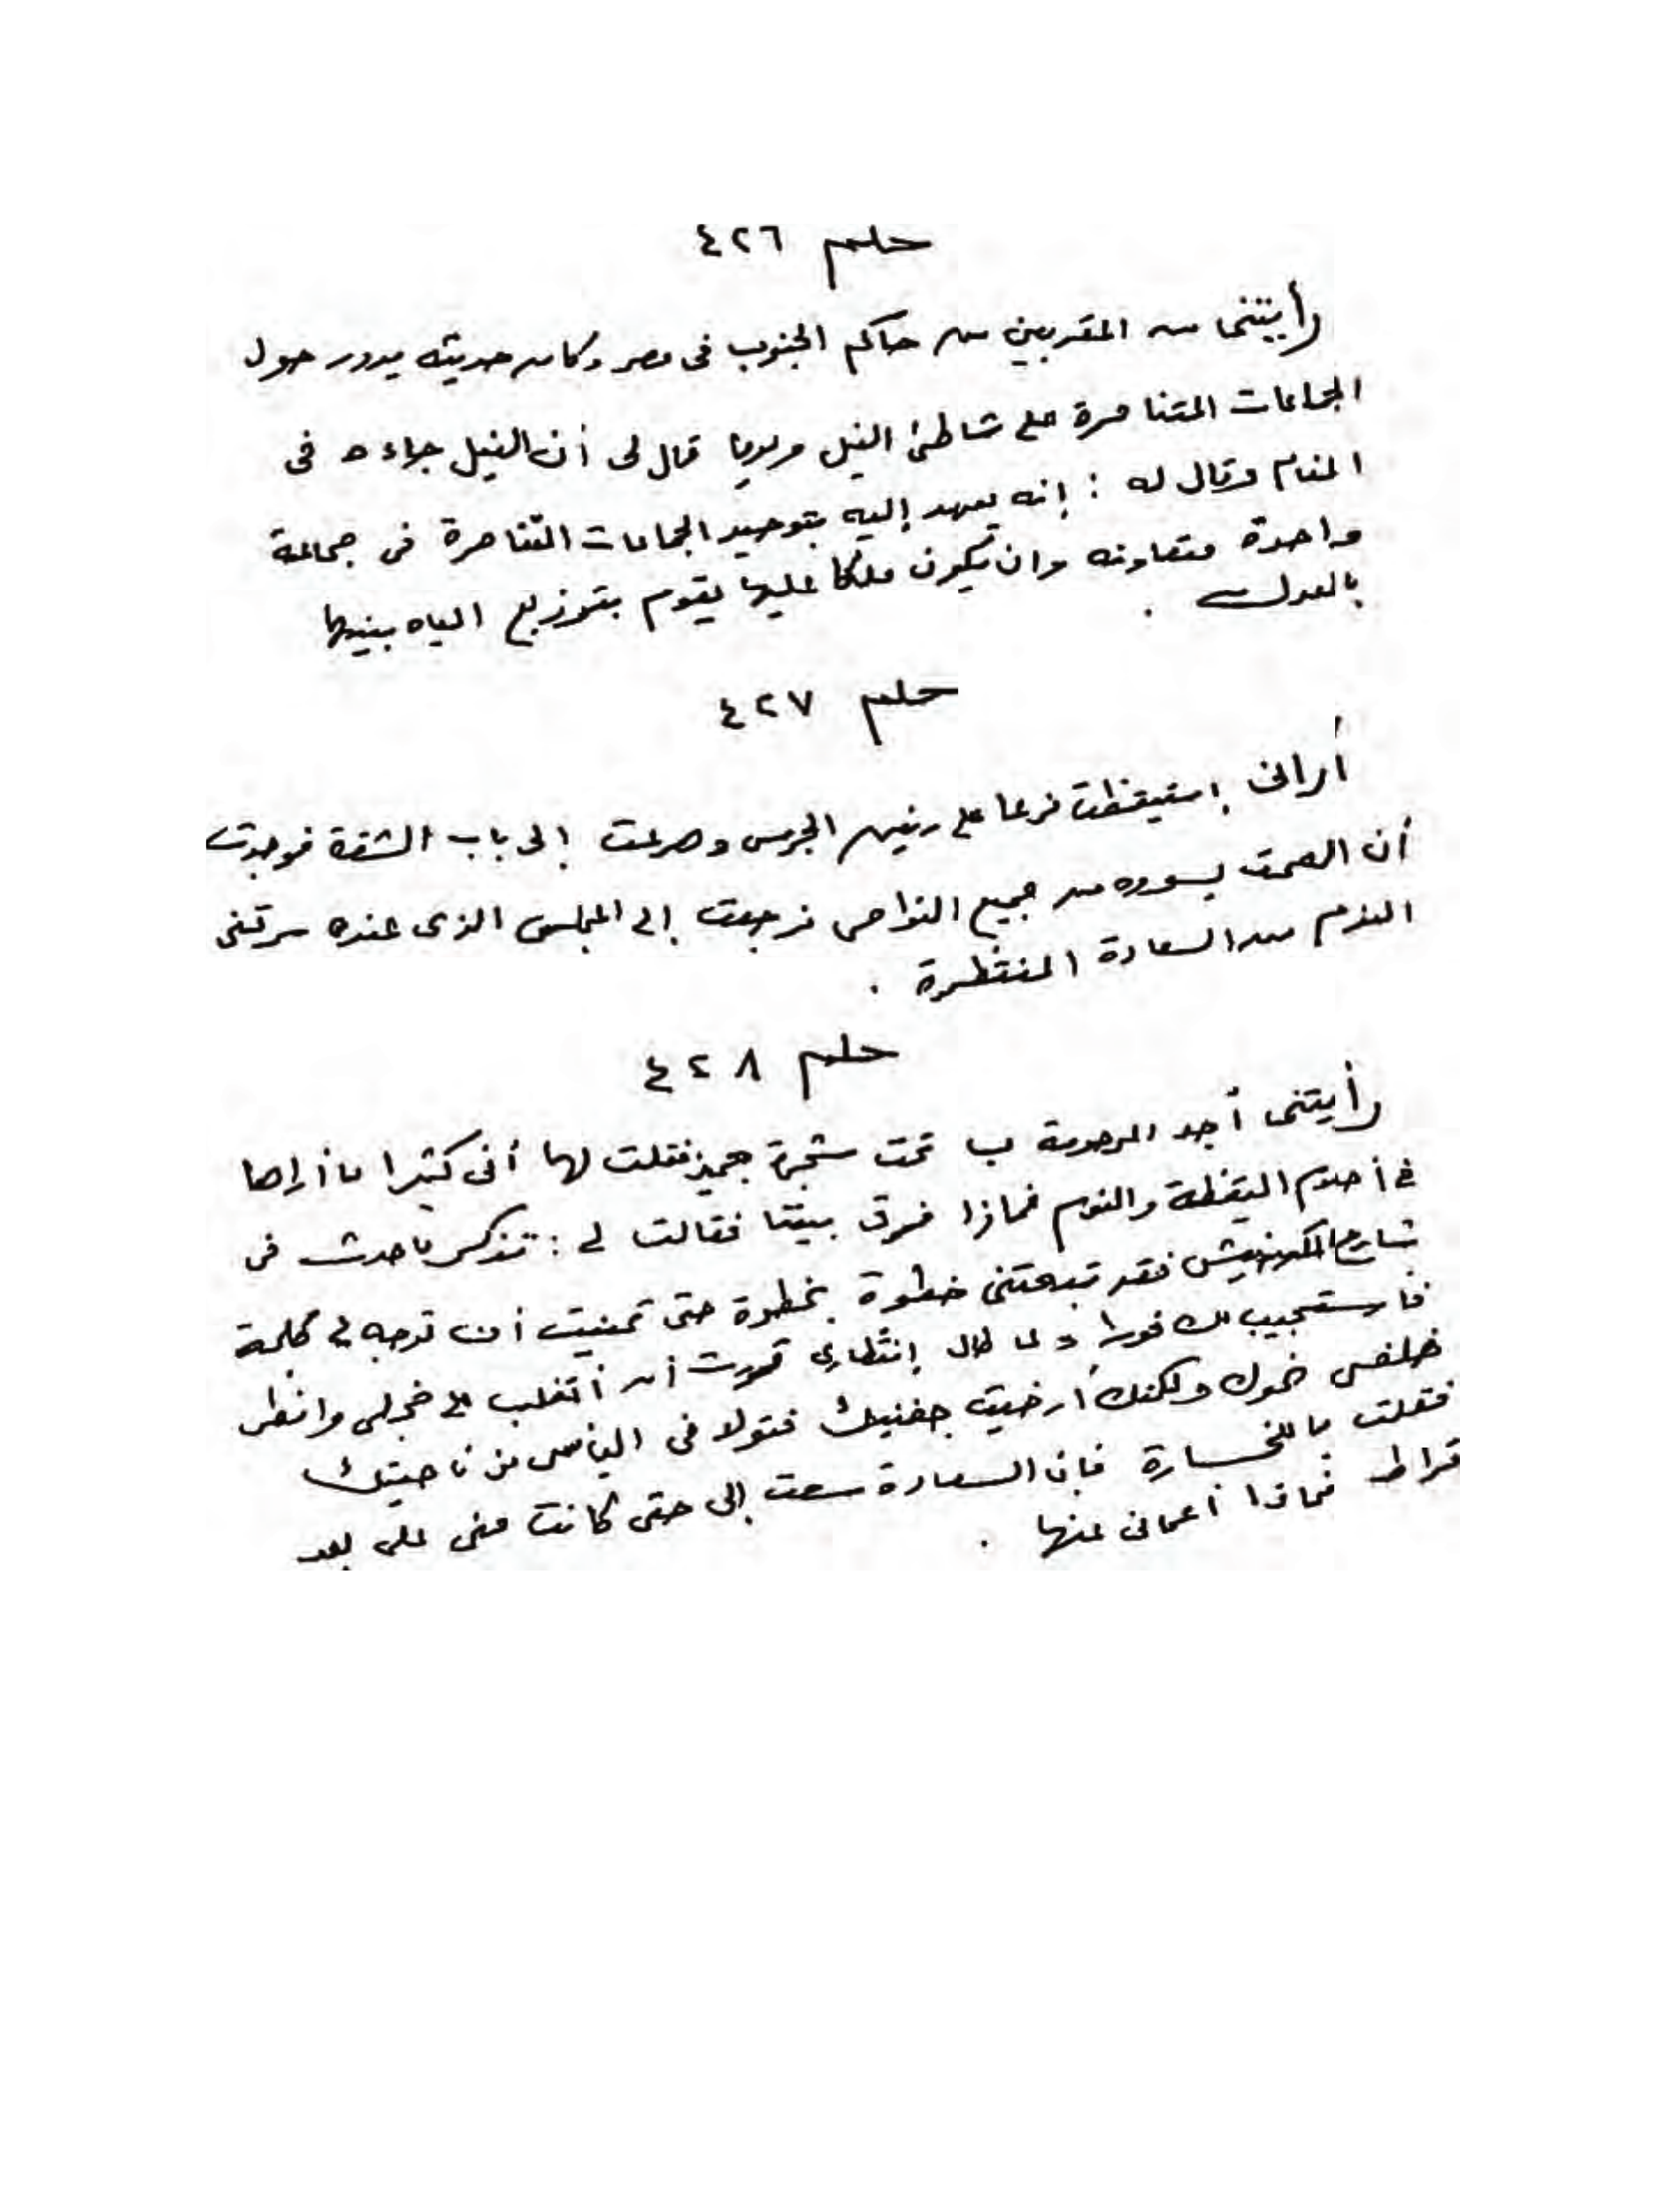 حلم ٤٢٦
رأيتنى من المقربين من حاكم الجنوب فى مصر وكان حديثه يدور حول
الجماعات المتناحرة على شاطئ النيل ويوما قال لى أن النيل جاءه فى
المنام وقال له : إنه يعهد إليه بتوحيد الجماعات المتناحرة فى جماعة
واحدة متعاونه وان يكون ملكا عليها يقوم بتوزيع المياه بينها
بالعدل .
حلم ٤٢٧
أرانى إستيقظت فزعا على رنين الجرس وهرعت إلى باب الشقة فوجدت
أن الصمت يسوده من جميع النواحى فرجعت إلى المجلس الذى عنده سرقنى
النوم من السعادة المنتظرة .
حلم ٤٢٨
رأيتنى أجد المرحومة ب تحت شجرة جميز فقلت لها أنى كثيرا ما أراها
فى أحلام اليقظة والنوم فماذا فرق بيننا فقالت لى : تذكر ما حدث فى
شارع الكورنيش فقد تبعتنى خطوة بخطوة حتى تمنيت أن توجه لى كلمة
فاستجيب لك فورا ولما طال إنتظارى قررت أن أتغلب على خجلى وانظر
خلفى نحوك ولكنك أرخيت جفنيك فتولانى اليأس من ناحيتك
فقلت ياللخسارة فإن السعادة سعت إلى حتى كانت منى على بعد
قراط فماذا أعمانى عنها .